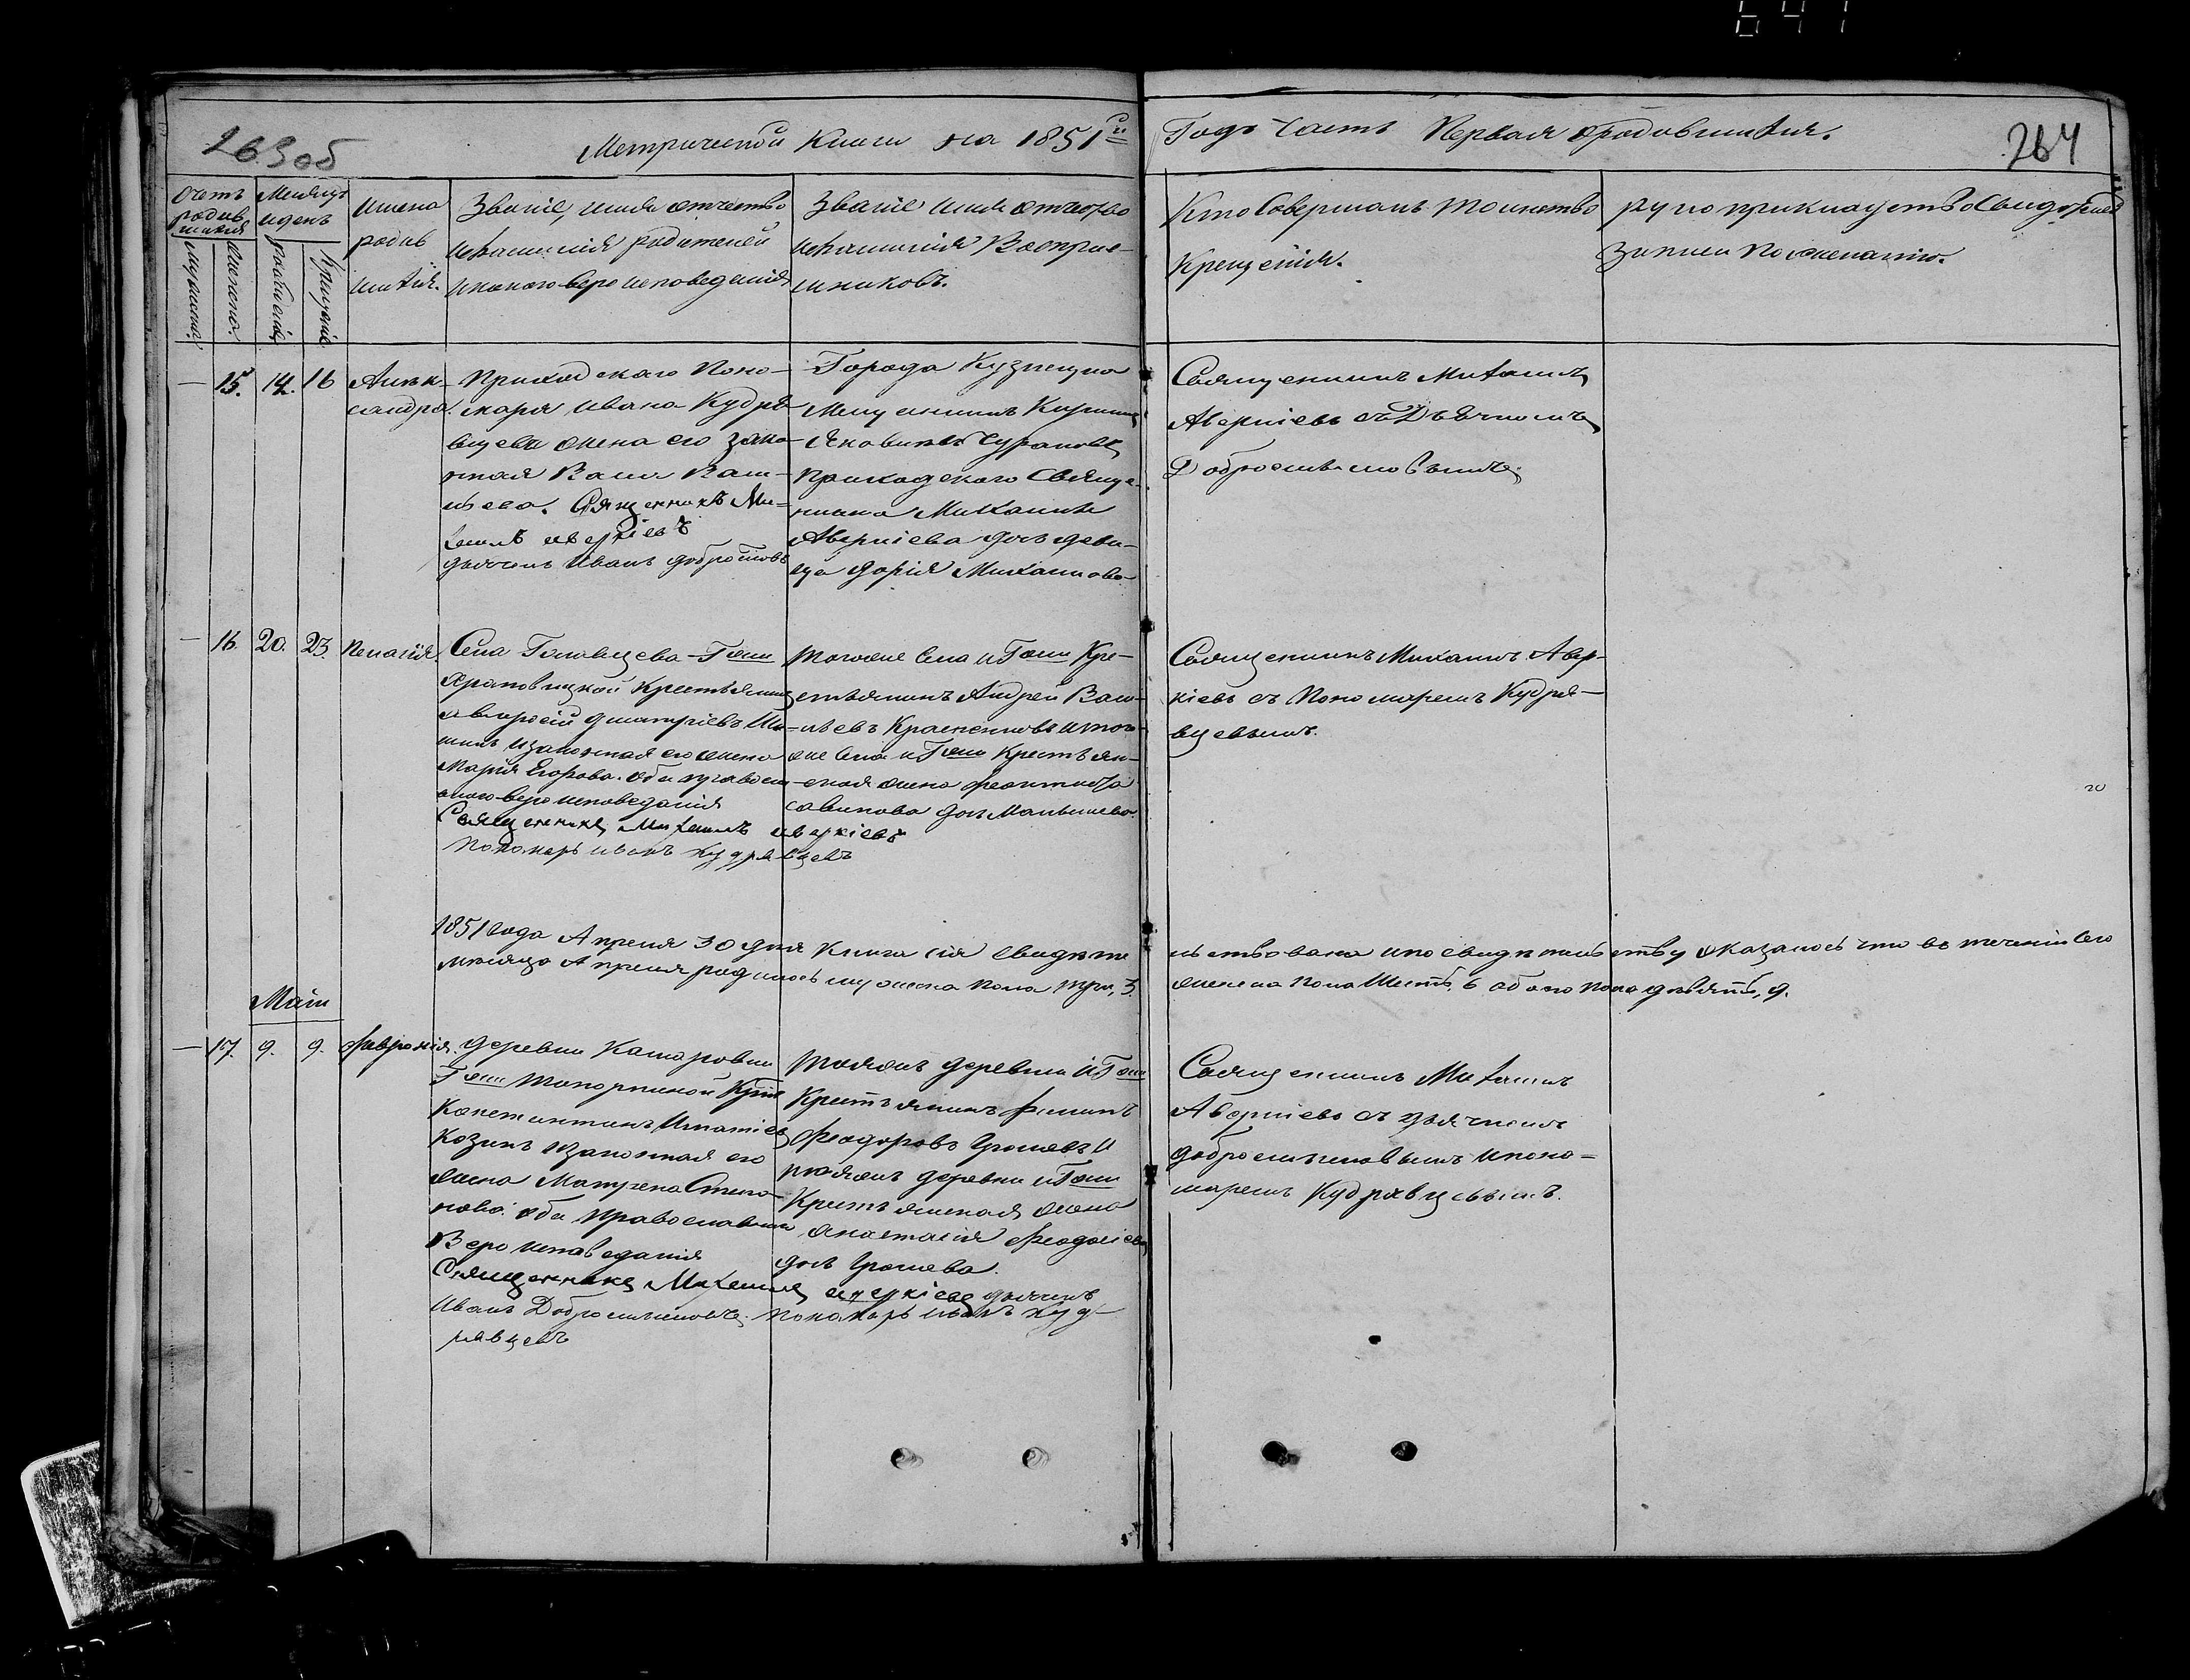 641
263об
Метрической Книги на 1851й Годъ Часть Первая о родившихся.
264
Счетъ родившихся
мужеска
женска
Месяцъ и день
рождения
Крещенія
Имена
родив
шихся.
Званіе, имя отчество
и фамилія родителей
и какого вероисповеданія
Званіе имя отчество
и фамилія Воспріе-
мниковъ.
Кто Совершалъ таинство
Крещенія.
рукоприкладство Свидетелей
Записи по желанію.
— 15. 14. 16
Алек-
сандра.
Приходскаго Поно-
маря Ивана Кудря
вцева жена его зако-
нная
Священникъ Ми-
хаилъ Аверкіевъ
дьячекъ Иванъ
Города Кузнецка
Мещанинъ
Приходскаго Свяще-
нника Михаила
Аверкіева дочь деви-
ца Дарія Михайлова
Священникъ Михаилъ
Аверкіевъ съ Дьячкомъ
Добросмысловымъ
— 16. 20. 23.
Пелагія.
Села Голавщева Гжи
Араповицкой Крестьянинъ
Дмитріевъ
и законная его жена
Марія Егорова. оба православ
наго вероисповеданія
Священникъ Михаилъ Аверкіевъ
Пономарь Иванъ Кудрявцевъ
тогоже Села и Гжи Кре-
стьянинъ Андрей Васи-
льевъ и того
же Села и Гжи Крестьян-
ская жена
Савинова дочь
Священникъ Михаилъ Авер-
кіевъ съ Пономаремъ Кудря-
вцевымъ.
1851 года Апреля 30 дня Книга сія свидете льствована и по свидетельству оказалось что въ теченіи сего
месяца Апреля родилось мужеска пола три, 3. женска пола Шесть, 6 обоего пола девять, 9.
Маій
— 17. 9. 9.
Февронія.
деревни Камаровки
Гжи
Константинъ Игнатіевъ
Козинъ и законная его
жена Матрена Степа-
нова. оба Православнаго
Вероисповеданія
Священникъ Михаилъ Аверкіевъ дьячекъ
Иванъ Добросмысловъ. пономарь Иванъ Куд-
рявцевъ
тояжъ деревни и Гжи
Крестьянинъ Филипъ
Феодоровъ и
тояжъ деревни и Гжи
Крестьянская жена
Анастасія
дочь
Священникъ Михаилъ
Аверкіевъ съ дьячкомъ
Добросмысловымъ и поно-
маремъ Кудрявцевымъ.